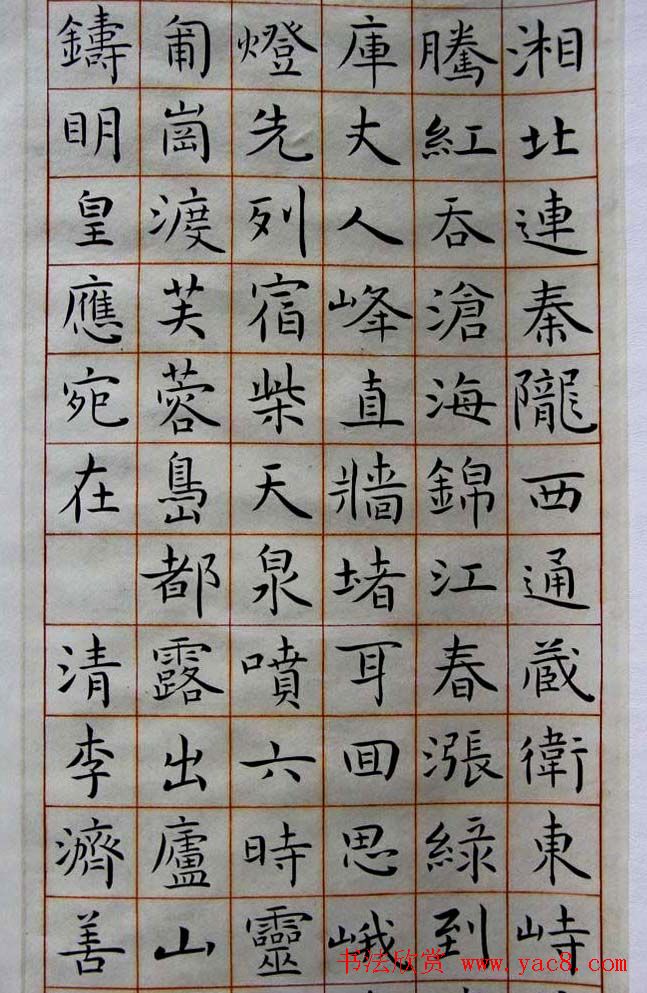 湘北連秦隴西通藏衛東峙
騰紅吞滄海錦江春漲綠到
庫丈人峰直牆堵耳回思峨
燈先列宿柴天泉噴六時靈
匍崗渡芙蓉島都露出廬山
鑄明皇應宛在 清李濟善
书法欣赏 www.yac8.com